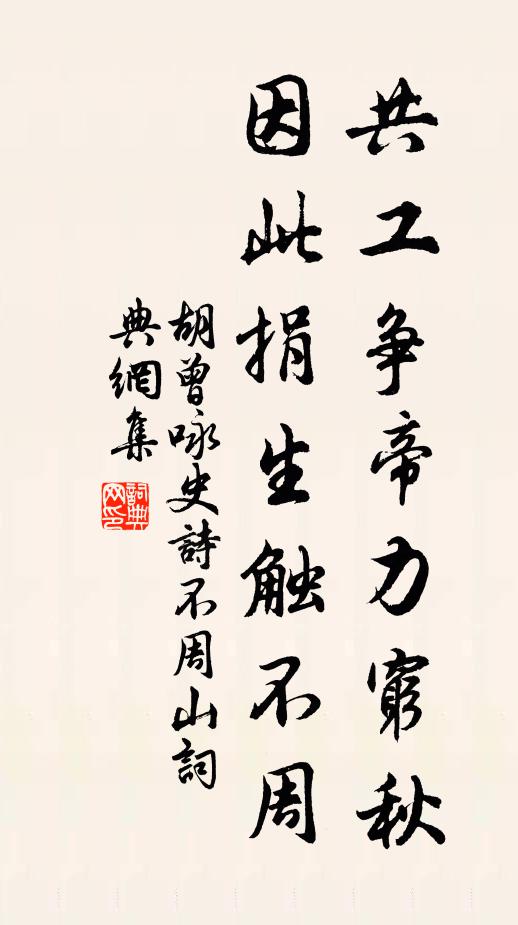 共工争帝力窮秋
因此捐生触不周
胡曾咏史詩不周山詞
典網集
詞典
网印